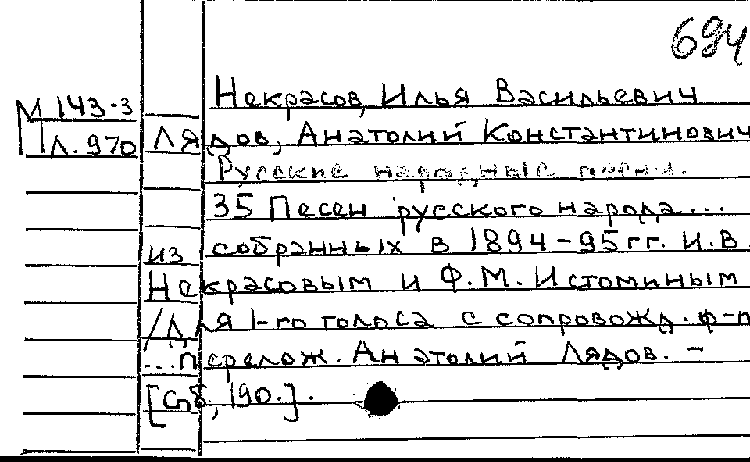 694
М 143-3
Пл. 970
Некрасов, Илья Васильевич
Лядов, Анатолий Константинович
Русские народные песни.
35 Песен русского народа...
из собранных в 1894-95 гг. И.В
Некрасовым и Ф.М. Истоминым
/Для 1-го голоса с сопровожд. ф-п
...перелож. Анатолий Лядов. –
[Спб, 190.].